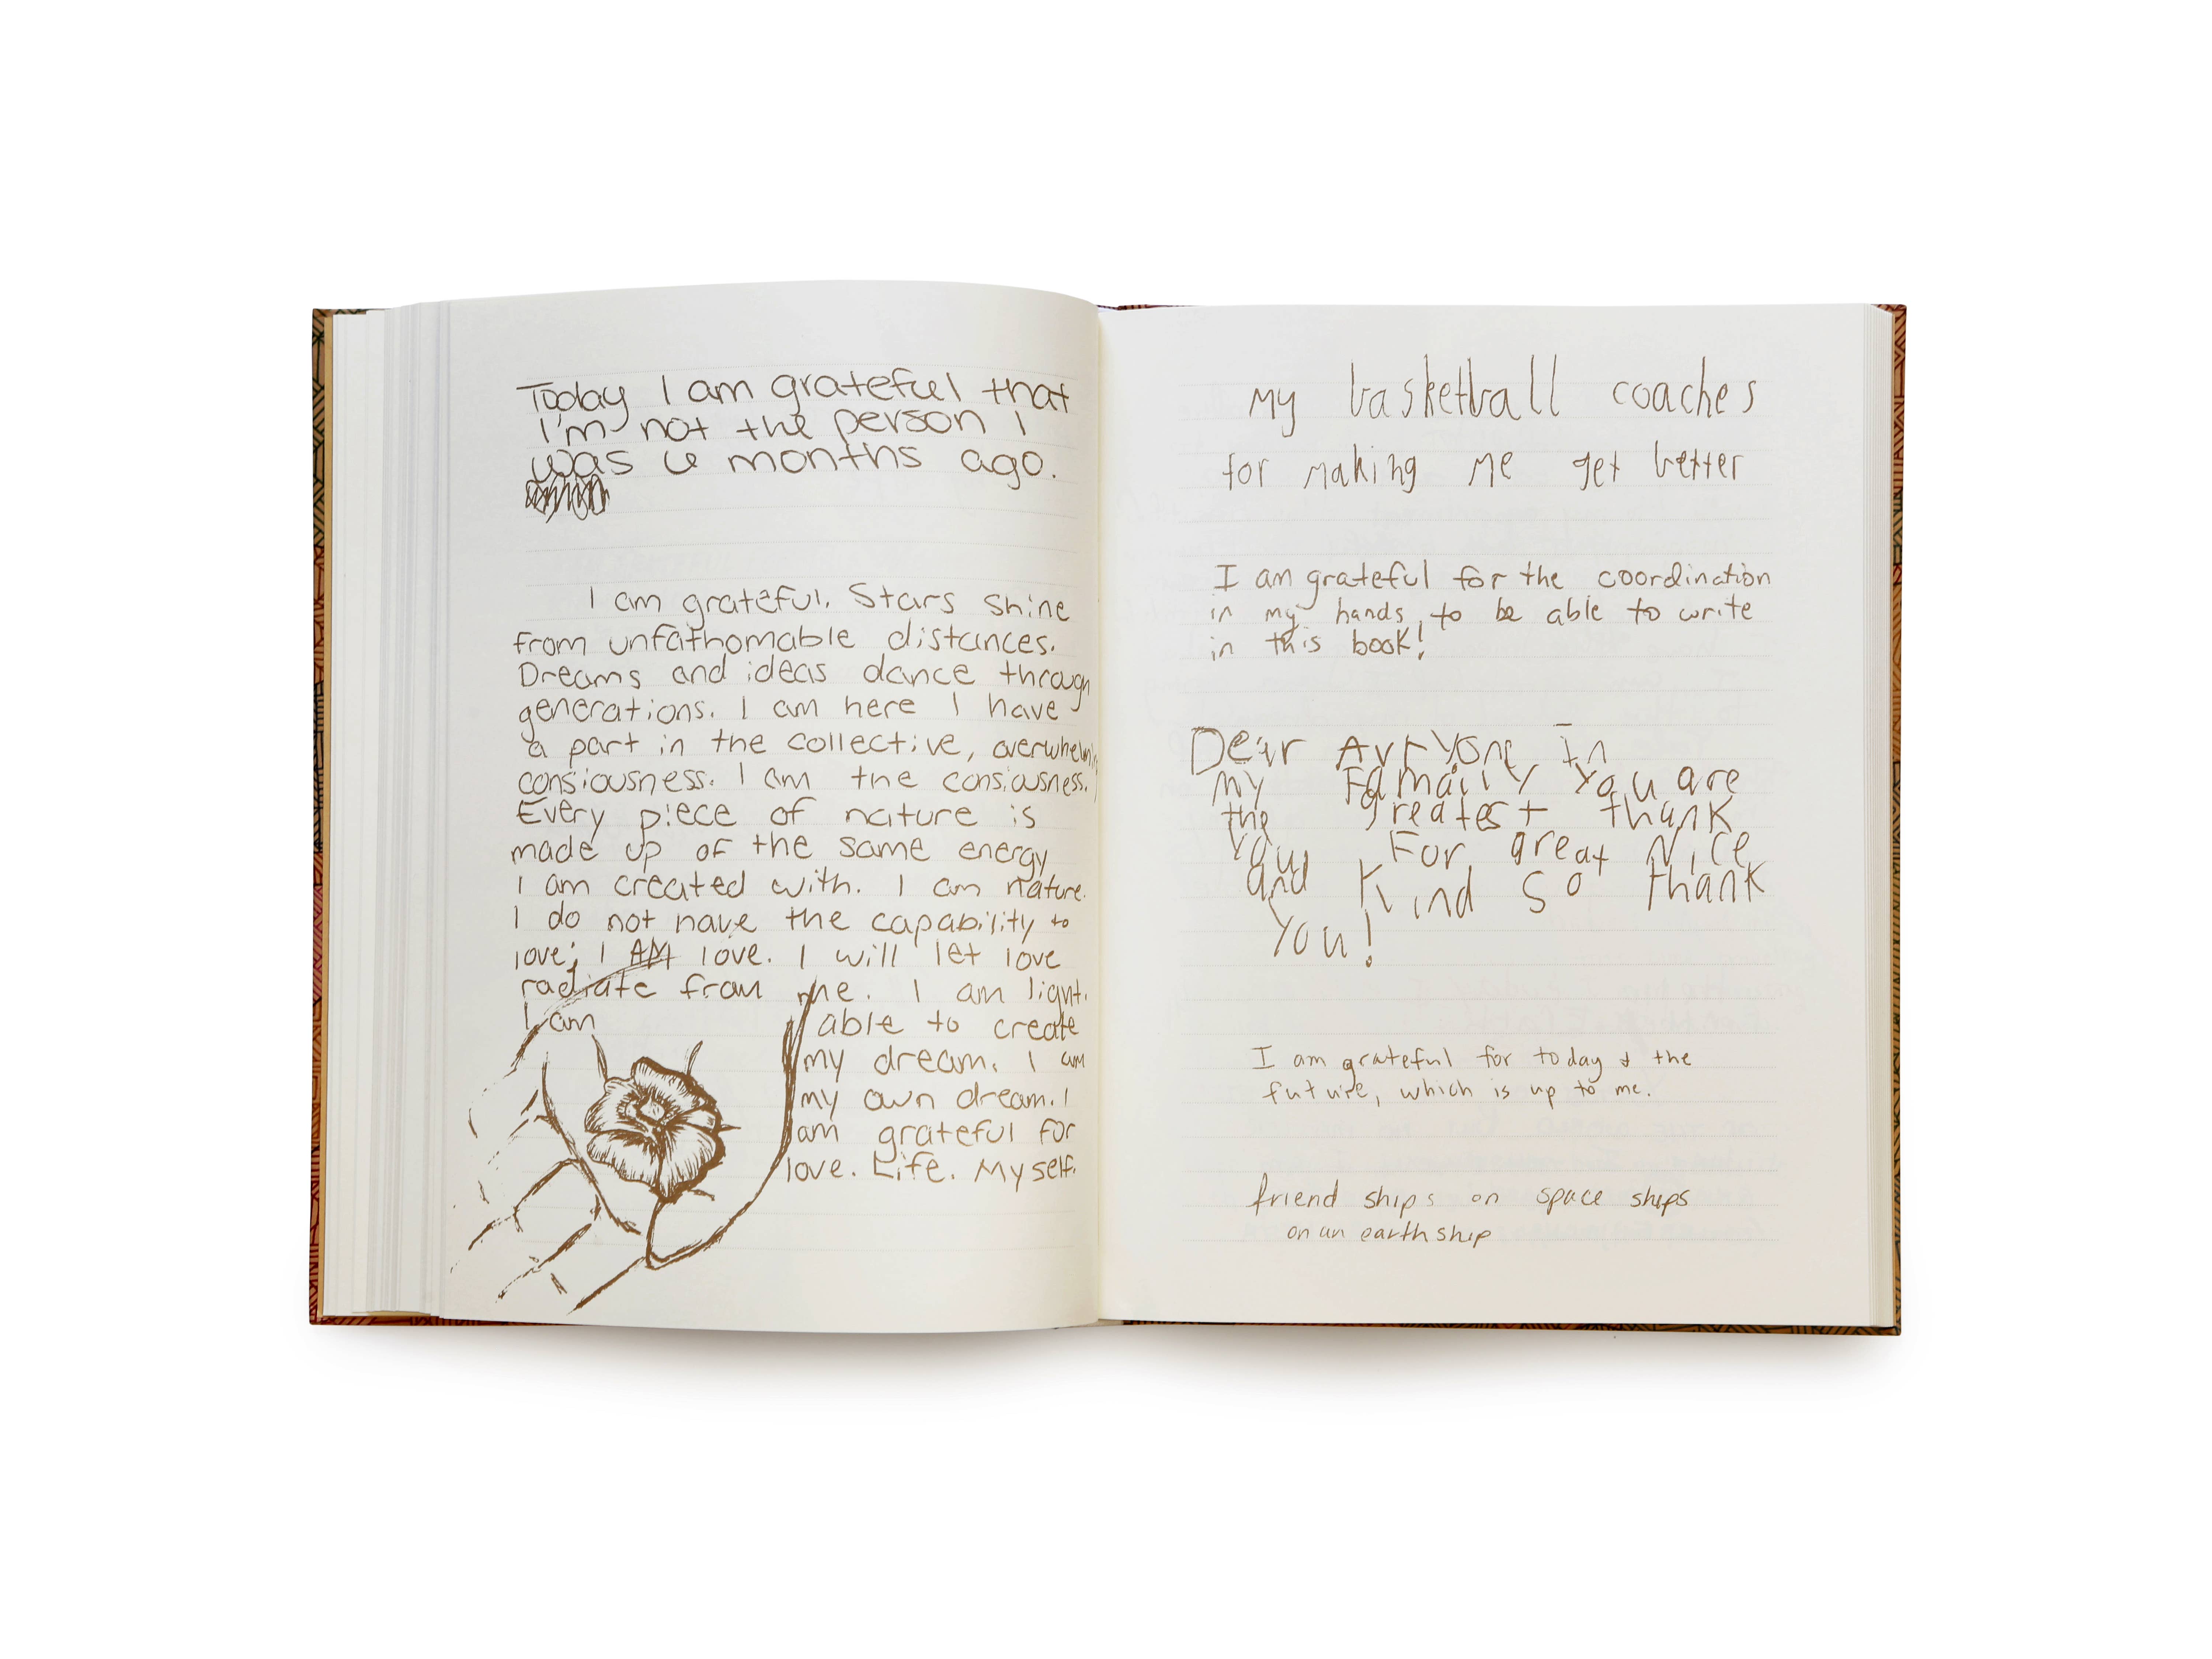 Today I am grateful that
I'm not the person I
was 6 months ago.
I am grateful. Stars shine
from unfathomable distances.
Dreams and ideas dance through
generations. I am here I have
a part in the collective, overwhelming
consiousness. I am the consiousness.
Every piece of nature is
made up of the same energy
I am created with. I am nature.
I do not have the capability to
love; I AM love. I will let love
radiate from me. I am light.
I am able to create
my dream. I am
my own dream. I
am grateful for
love. Life. Myself.
My basketball coaches
for making me get better
I am grateful for the coordination
in my hands, to be able to write
in this book!
Dear in
my you are
the greatest thank
you For great Nice
and Kind So thank
You!
I am grateful for today & the
future, which is up to me.
friend ships on space ships
on an earth ship